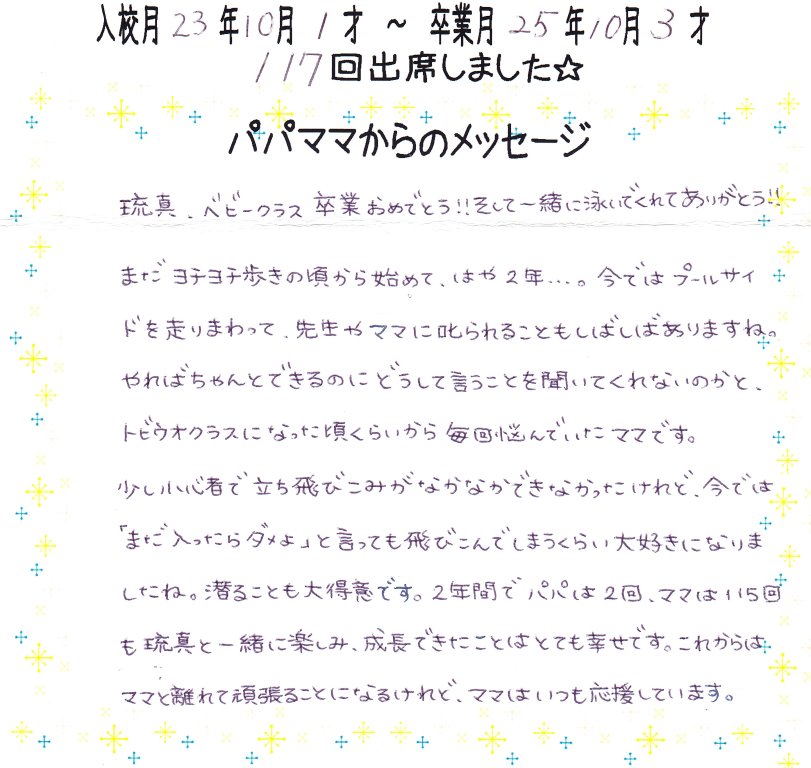 入校月 23 年10月 1 才 ～ 卒業月 25 年10月 3 才
117回出席しました☆
パパママからのメッセージ
琉真、ベビークラス 卒業おめでとう!!そして一緒に泳いでくれてありがとう!!
まだヨチヨチ歩きの頃から始めて、はや2年…。今ではプールサイ
ドを走りまわって、先生やママに叱られることもしばしばありますね。
やればちゃんとできるのにどうして言うことを聞いてくれないのかと、
トビウオクラスになった頃くらいから毎回悩んでいたママです。
少し小心者で立ち飛びこみがなかなかできなかったけれど、今では
「まだ入ったらダメよ」と言っても飛びこんでしまうくらい大好きになりま
したね。潜ることも大得意です。2年間でパパは2回、ママは115回
も琉真と一緒に楽しみ、成長できたことはとても幸せです。これからは
ママと離れて頑張ることになるけれど、ママはいつも応援しています。